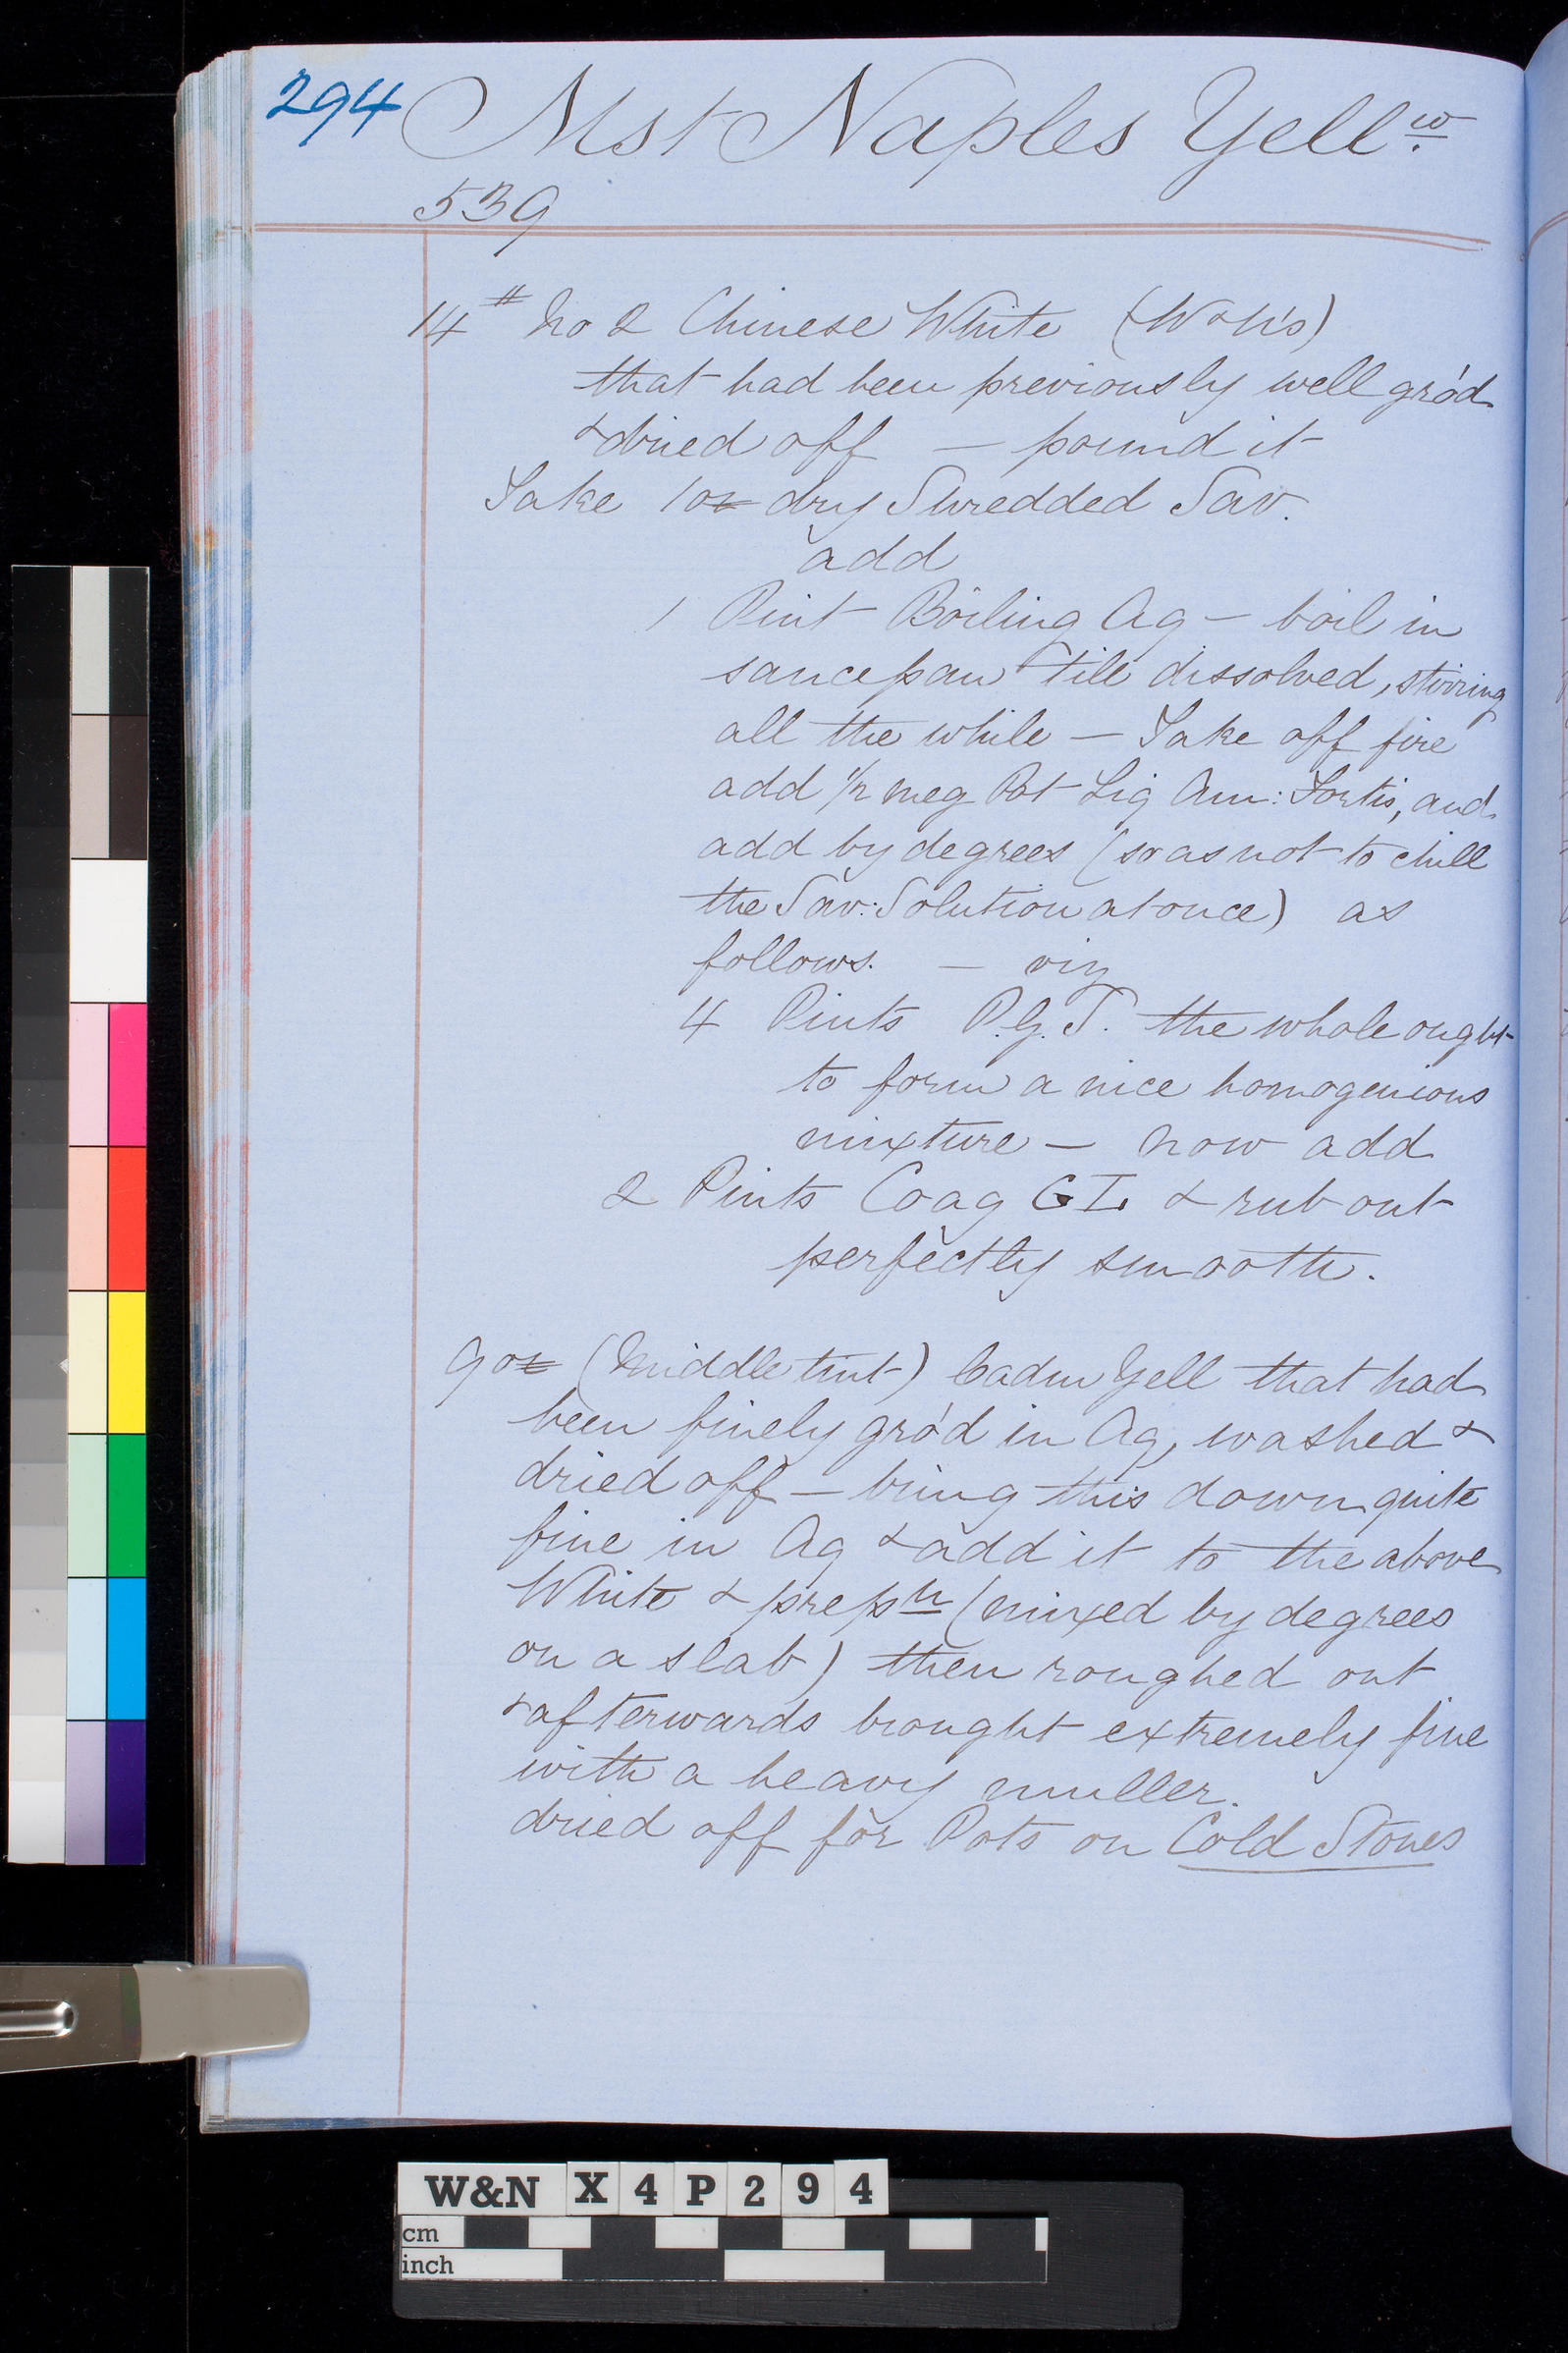 294 Mst Naples Yellw.
539
14# No 2 Chinese White (W&N's)
that had been previously well gro'd
& dried off — pound it
Take 1 oz dry Shredded Sav.
add
1 Pint Boiling Aq — boil in
saucepan till dissolved, stirring
all the while — Take off fire
add 1/2 meg Pot Liq Am: Fortis, and
add by degrees (so as not to chill
the Sav: Solution at once) as
follows. — viz
4 Pints P.G.T. the whole ought
to form a nice homogenious
mixture — now add
2 Pints Coag GL & rub out
perfectly smooth.
9 oz (Middle tint) Cadm Yell that had
been finely gro'd in Aq, washed &
dried off — bring this down quite
fine in Aq & add it to the above
White & prepn (mixed by degrees
on a slab) then roughed out
& afterwards brought extremely fine
with a heavy muller.
dried off for Pots on Cold Stones
W&N X4P294
cm
inch